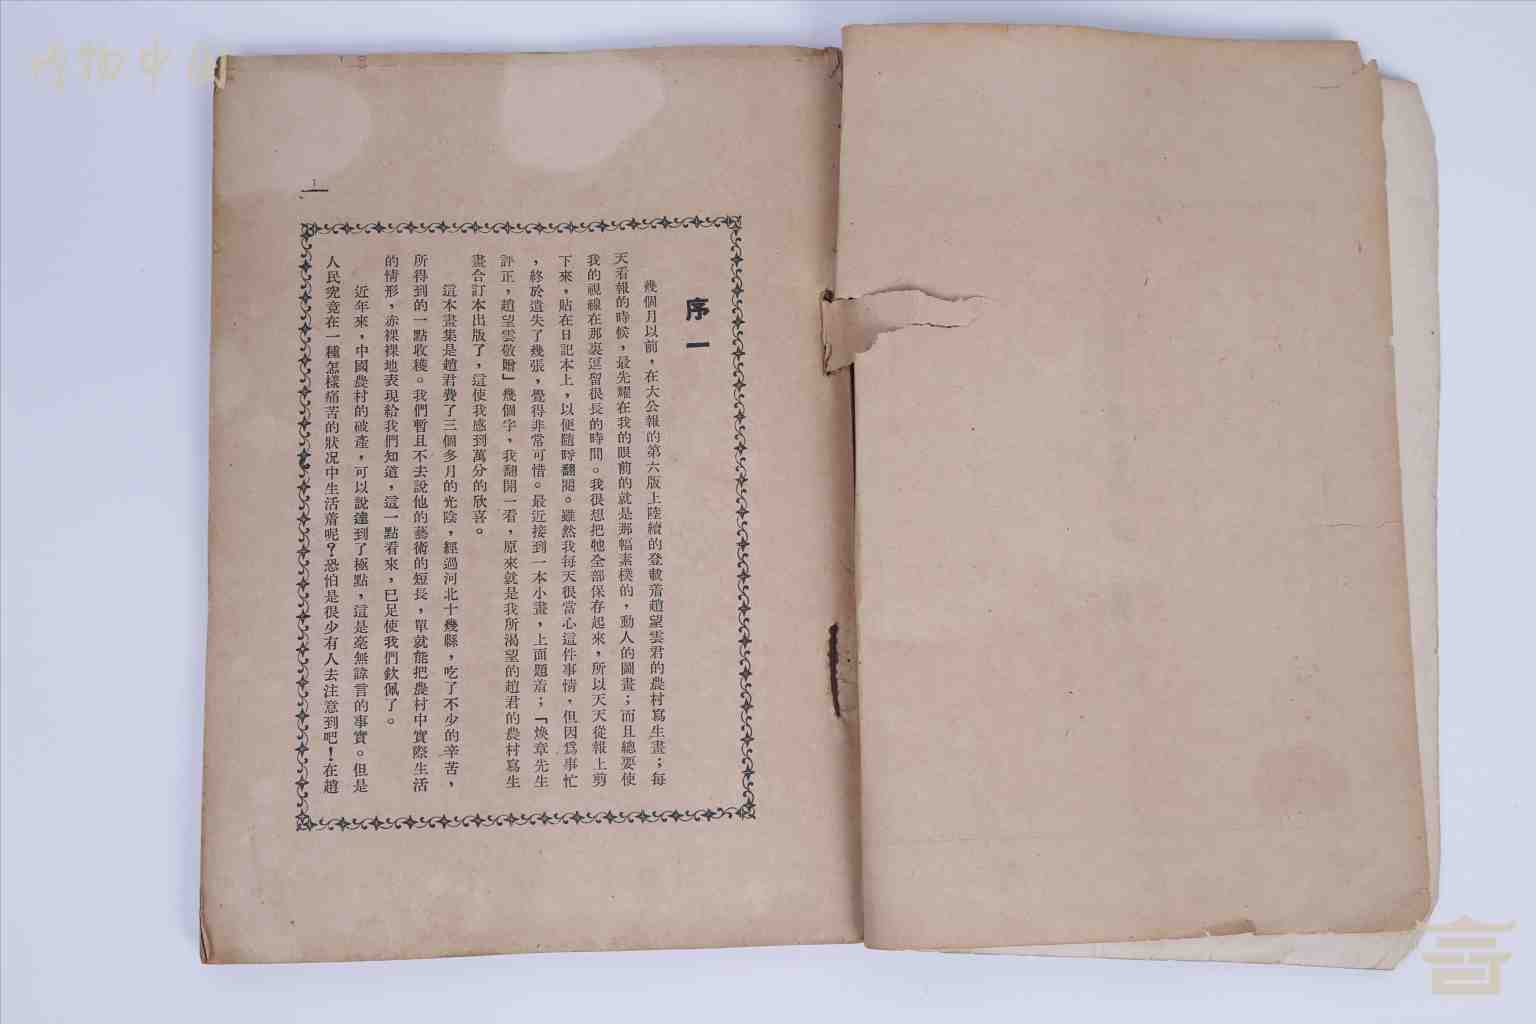 序一
幾個月以前，在大公報的第六版上陸續的登載着趙望雲君的農村寫生畫；每
天看報的時候，最先耀在我的眼前的就是那幅素樸的，動人的圖畫；而且總要使
我的視線在那裏逗留很長的時間。我很想把牠全部保存起來，所以天天從報上剪
下來，貼在日記本上，以便隨時翻閱。雖然我每天很當心這件事情，但因爲事忙
，終於遺失了幾張，覺得非常可惜。最近接到一本小畫，上面題着；「煥章先生
評正，趙望雲敬贈」幾個字，我翻開一看，原來就是我所渴望的趙君的農村寫生
畫合訂本出版了，這使我感到萬分的欣喜。
這本畫集是趙君費了三個多月的光陰，經過河北十幾縣，吃了不少的辛苦，
所得到的一點收穫。我們暫且不去說他的藝術的短長，單就能把農村中實際生活
的情形，赤裸裸地表現給我們知道，這一點看來，已足使我們欽佩了。
近年來，中國農村的破產，可以說達到了極點，這是毫無諱言的事實。但是
人民究竟在一種怎樣痛苦的狀况中生活着呢？恐怕是很少有人去注意到吧！在趙
1
博物中国